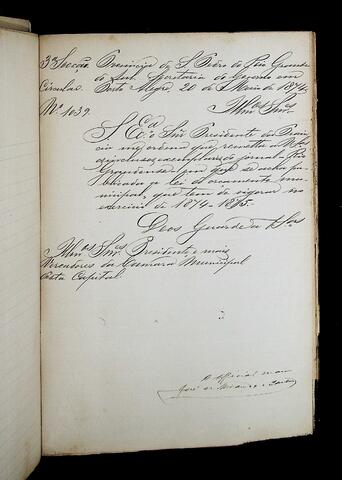 3ª Secção Provincia de S. Pedro do Rio Grande
do Sul. Secretaria do Governo em
Circular. Porto Alegre, 20 de Maio de 1874.
Nº 1039. Illmos Snres
S. Exª o Snr Presidente da Provin
cia me ordena que remetta a VSas
exemplares do jornal - Rio
Grandense em que se acha pu
blicada a lei do orçamento mu
nicipal, que tem de vigorar no
exercicio de 1874-1875.
Deos Guarde a VSas
Illmos Snres Presidente e mais
Vereadores da Camara Municipal
desta Capital.
O Official maior
José de Miranda e